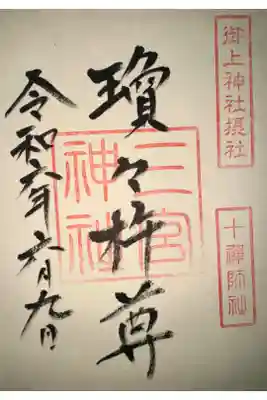 御上神社摂社
十禪師社
瓊々杵尊
三宮神社
令和六年六月九日